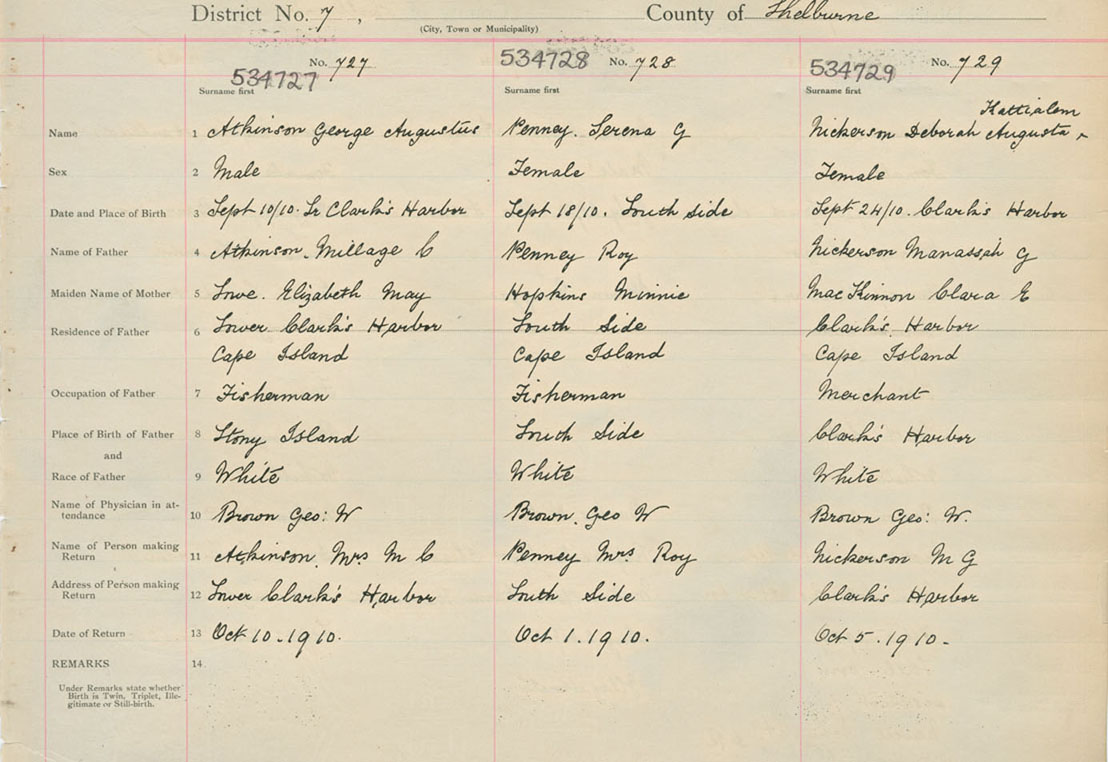 District No. 7, County of Shelburne
(City, Town or Municipality)
534727 No. 727 534728 No. 728 534729 No. 729
Surname first Surname first Surname first
Name 1 Atkinson George Augustus Penney. Serena G Nickerson Deborah Augusta
Sex 2 Male Female Female
Date and Place of Birth 3 Sept 10/10. Lr Clark's Harbor Sept 18/10. South Side Sept 24/10. Clark's Harbor
Name of Father 4 Atkinson. Millage C Penney Roy Nickerson Manassah G
Maiden Name of Mother 5 Lowe. Elizabeth May Hopkins Minnie MacKinnon Clara E
Residence of Father 6 Lower Clark's Harbor South Side Clark's Harbor
Cape Island Cape Island Cape Island
Occupation of Father 7 Fisherman Fisherman Merchant
Place of Birth of Father 8 Stony Island South Side Clark's Harbor
and
Race of Father 9 White White White
Name of Physician in at-
tendance 10 Brown Geo: W Brown. Geo W Brown Geo: W.
Name of Person making
Return 11 Atkinson. Mrs M C Penney Mrs Roy Nickerson M G
Address of Person making
Return 12 Lower Clark's Harbor South Side Clark's Harbor
Date of Return 13 Oct 10. 1910. Oct 1. 1910. Oct 5. 1910.
REMARKS 14
Under Remarks state whether
Birth is Twin, Triplet, Ille-
gitimate or Still-birth.